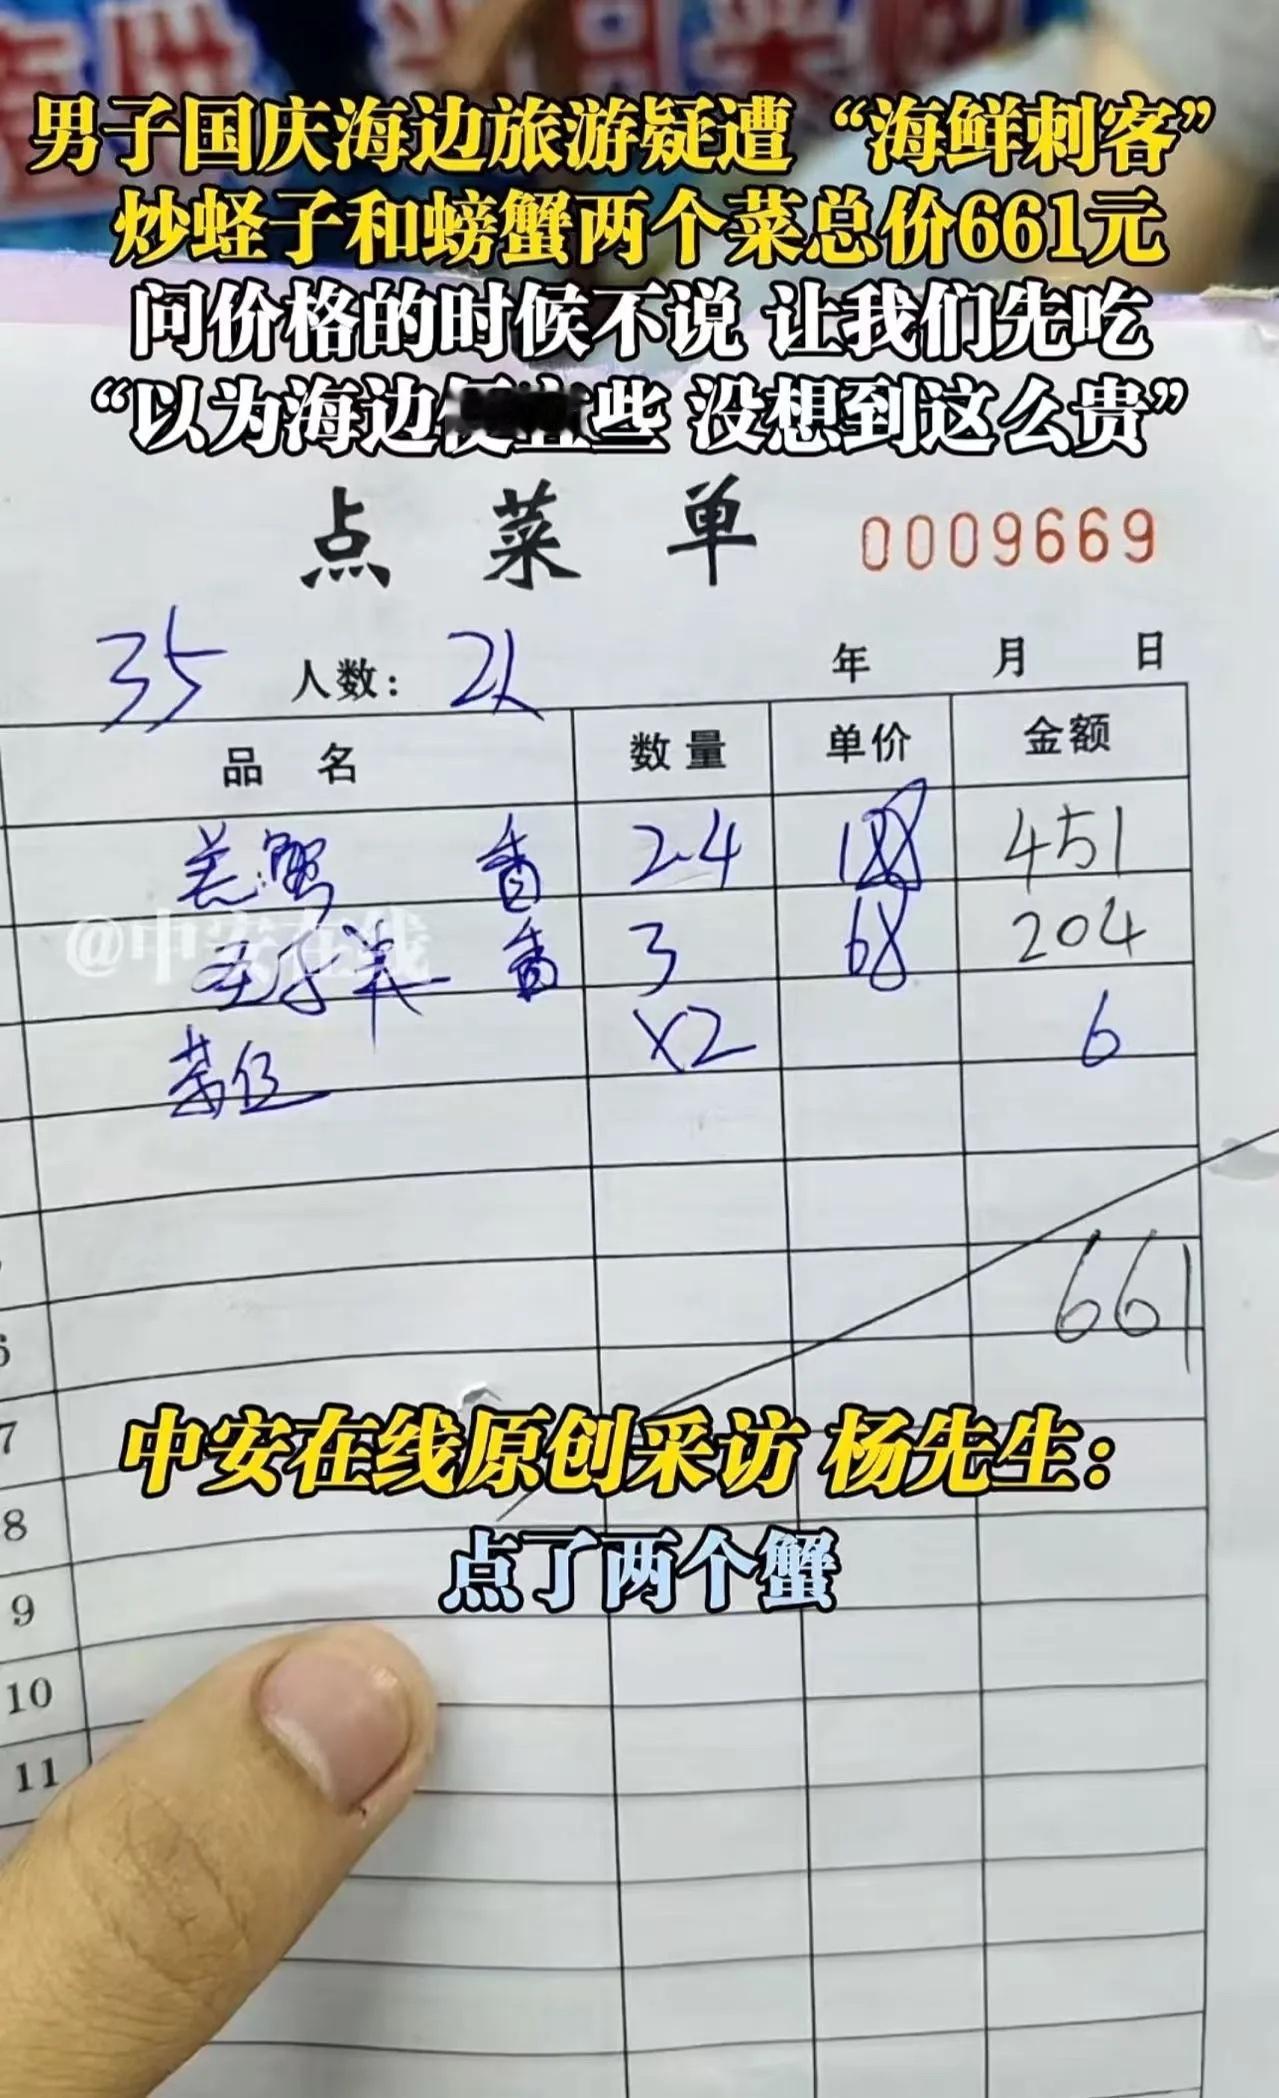 男子国庆海边旅游疑遭“海鲜刺客”
炒蛏子和螃蟹两个菜总价661元
问价格的时候不说 让我们先吃
“以为海边便宜些 没想到这么贵”
点菜单 0009669
35 人数: 2人 年 月 日
品名 数量 单价 金额
羔蟹 香 2.4 188 451
@中安在线
香 3 68 204
茶位 X2 6
661
6
7
中安在线原创采访 杨先生:
8
点了两个蟹
9
10
11